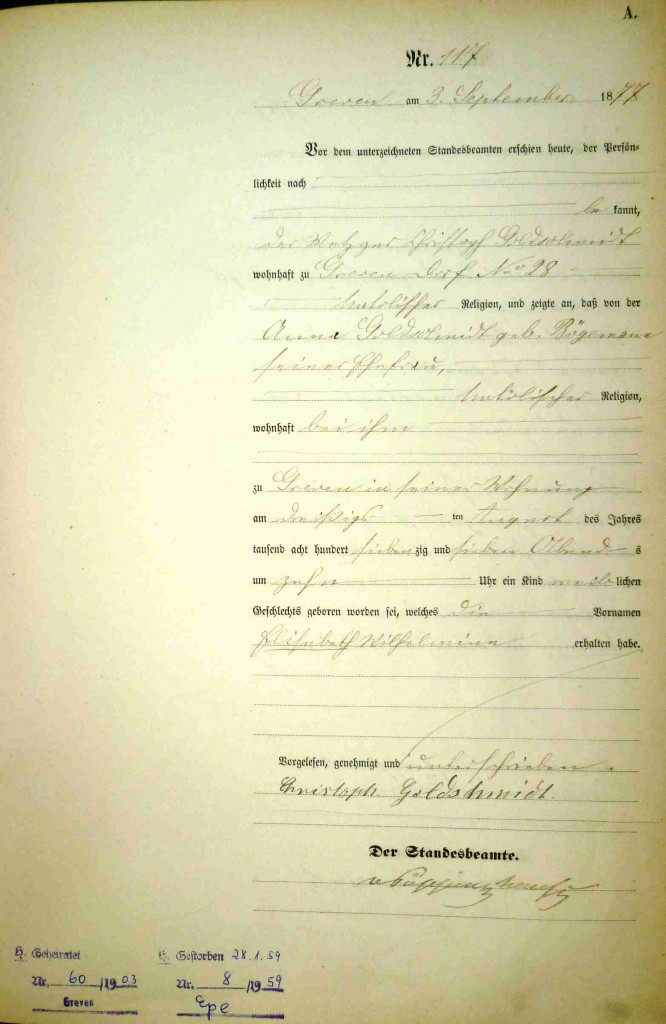 A.
Nr. 117
Greven am 3. September 1877
Vor dem unterzeichneten Standesbeamten erschien heute, der Persön-
lichkeit nach
be kannt,
der Metzger Christoph Goldschmidt
wohnhaft zu Greven Dorf No 28
katolischer Religion, und zeigte an, daß von der
Anna Goldschmidt geb. Bögemann
seiner Ehefrau,
katolischer Religion,
wohnhaft bei ihm
zu Greven in seiner Wohnung
am dreißigs ten August des Jahres
tausend acht hundert siebenzig und sieben Abend s
um zehn Uhr ein Kind weiblichen
Geschlechts geboren worden sei, welches die Vornamen
Elisabeth Wilhelmine erhalten habe.
Vorgelesen, genehmigt und unterschrieben.
Christoph. Goldschmidt.
Der Standesbeamte.
H. Geheiratet
Nr. 60/1903
Greven
H. Gestorben 28.1.59
Nr. 8/1959
Epe